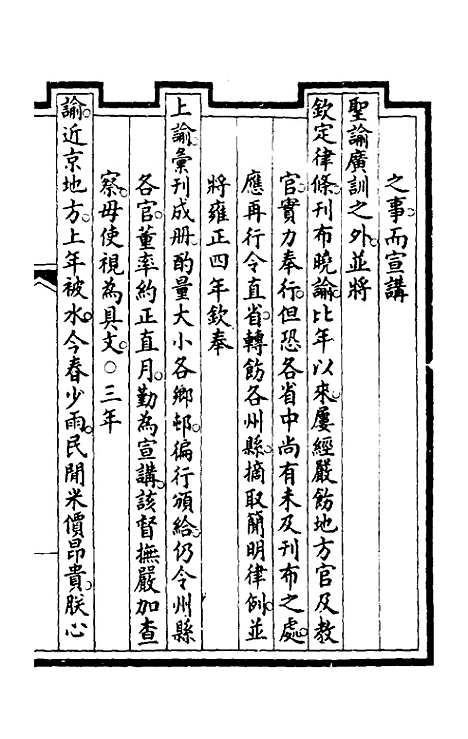 之事而宣講
聖諭廣訓之外並將
欽定律條刊布曉諭比年以來屢經嚴飭地方官及教
官實力奉行但恐各省中尚有未及刊布之處
應再行令直省轉飭各州縣摘取簡明律例並
將雍正四年欽奉
上諭彙刊成冊酌量大小各鄉邨徧行頒給仍令州縣
各官董率約正直月勤為宣講該督撫嚴加查
察毋使視為具文○三年
諭近京地方上年被水今春少雨民閒米價昂貴朕心